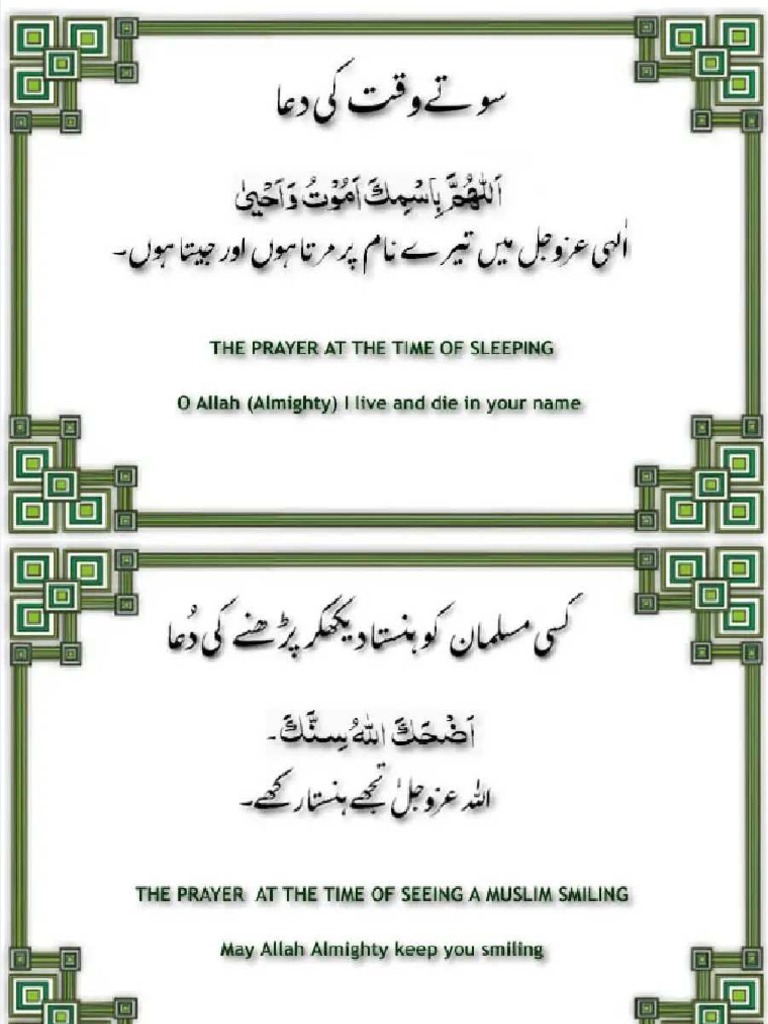 سوتے وقت کی دعا
اَللّٰهُمَّ بِاسْمِكَ اَمُوْتُ وَاَحْيىٰ
الٰہی عزوجل میں تیرے نام پر مرتا ہوں اور جیتا ہوں۔
THE PRAYER AT THE TIME OF SLEEPING
O Allah (Almighty) I live and die in your name
کسی مسلمان کو ہنستا دیکھکر پڑھنے کی دُعا
اَضْحَكَ اللهُ سِنَّكَ۔
اللہ عزوجل تجھے ہنستا رکھے۔
THE PRAYER AT THE TIME OF SEEING A MUSLIM SMILING
May Allah Almighty keep you smiling